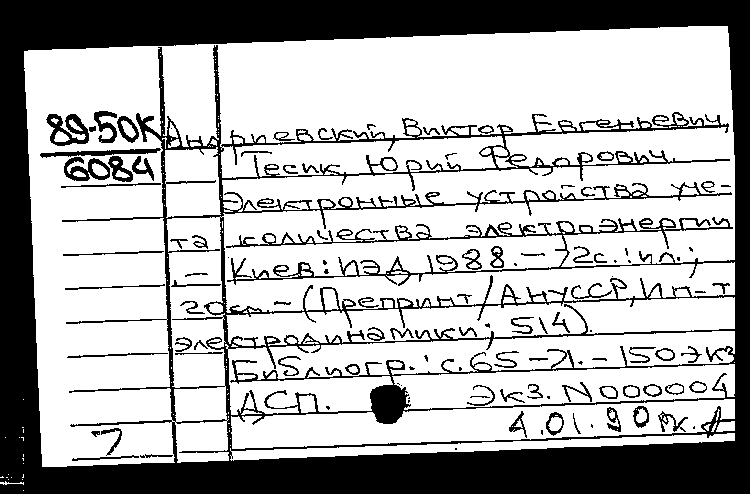 89-50К Андриевский, Виктор Евгеньевич,
6084 Тесик, Юрий Федорович.
Электронные устройства уче-
та количества электроэнергии
.– Киев: ИЭД, 1988. – 72с.: ил.;
20см. – (Препринт/АНУССР, Ин-т
электродинамики; 514).
Библиогр.: с.65-71. – 150экз
ДСП. Экз. N000004
7 4.01.90